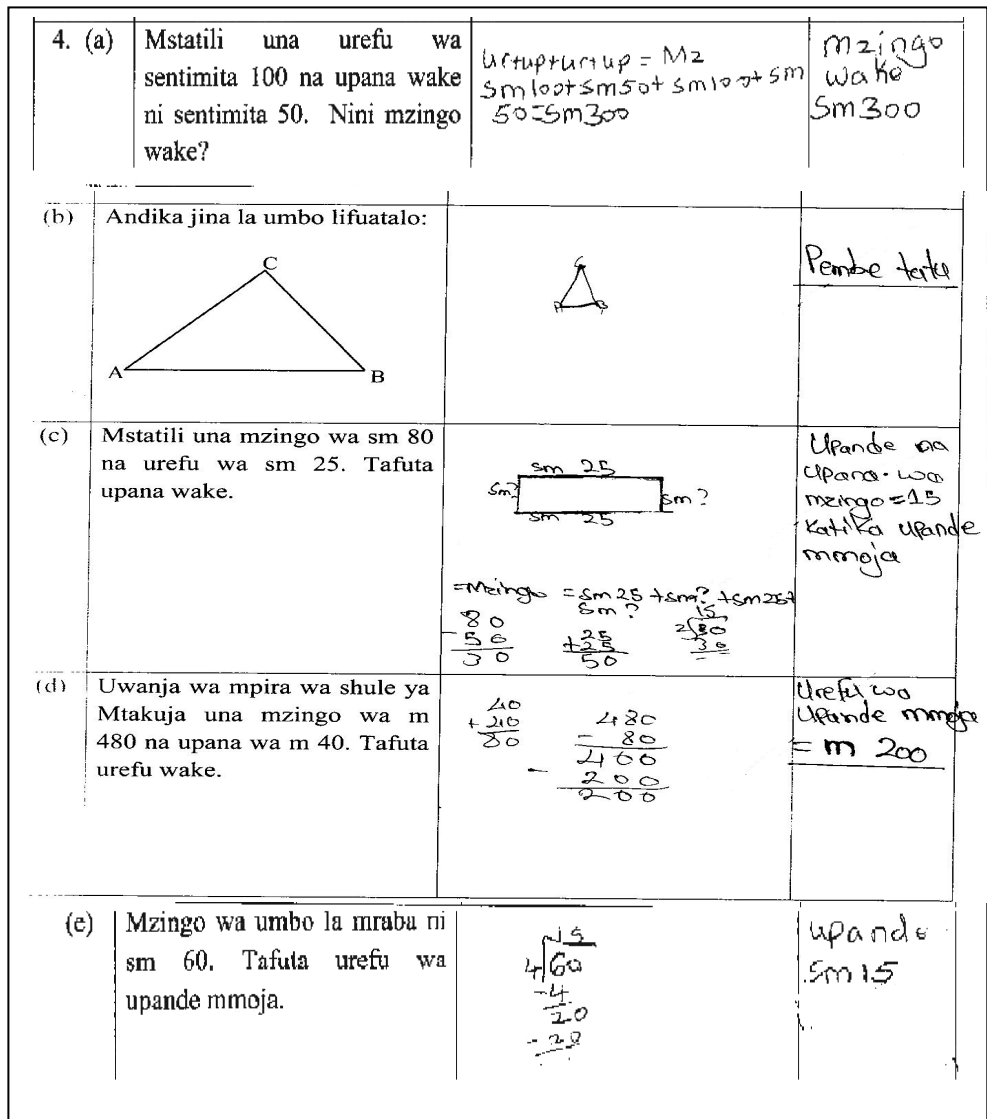 4. (a)
Mstatili una urefu wa
sentimita 100 na upana wake
ni sentimita 50. Nini mzingo
wake?
Ur+up+ur+up = Mz
Sm100+Sm50+Sm100+Sm
50=Sm300
mzingo
wake
Sm300
(b)
Andika jina la umbo lifuatalo:
C
A
B
C
A
B
Pembe tatu
(c)
Mstatili una mzingo wa sm 80
na urefu wa sm 25. Tafuta
upana wake.
sm 25
sm?
sm?
sm 25
=Mzingo =sm25+sm?+sm25+
sm?
80
- 50
30
25
+25
50
15
2 30
30
Upande na
upana. wa
mzingo=15
katika upande
mmoja
(d)
Uwanja wa mpira wa shule ya
Mtakuja una mzingo wa m
480 na upana wa m 40. Tafuta
urefu wake.
40
+ 40
80
480
- 80
400
- 200
200
Urefu wa
Upande mmoja
= m 200
(e)
Mzingo wa umbo la mraba ni
sm 60. Tafuta urefu wa
upande mmoja.
15
4 60
-4
20
- 20
upande
sm15